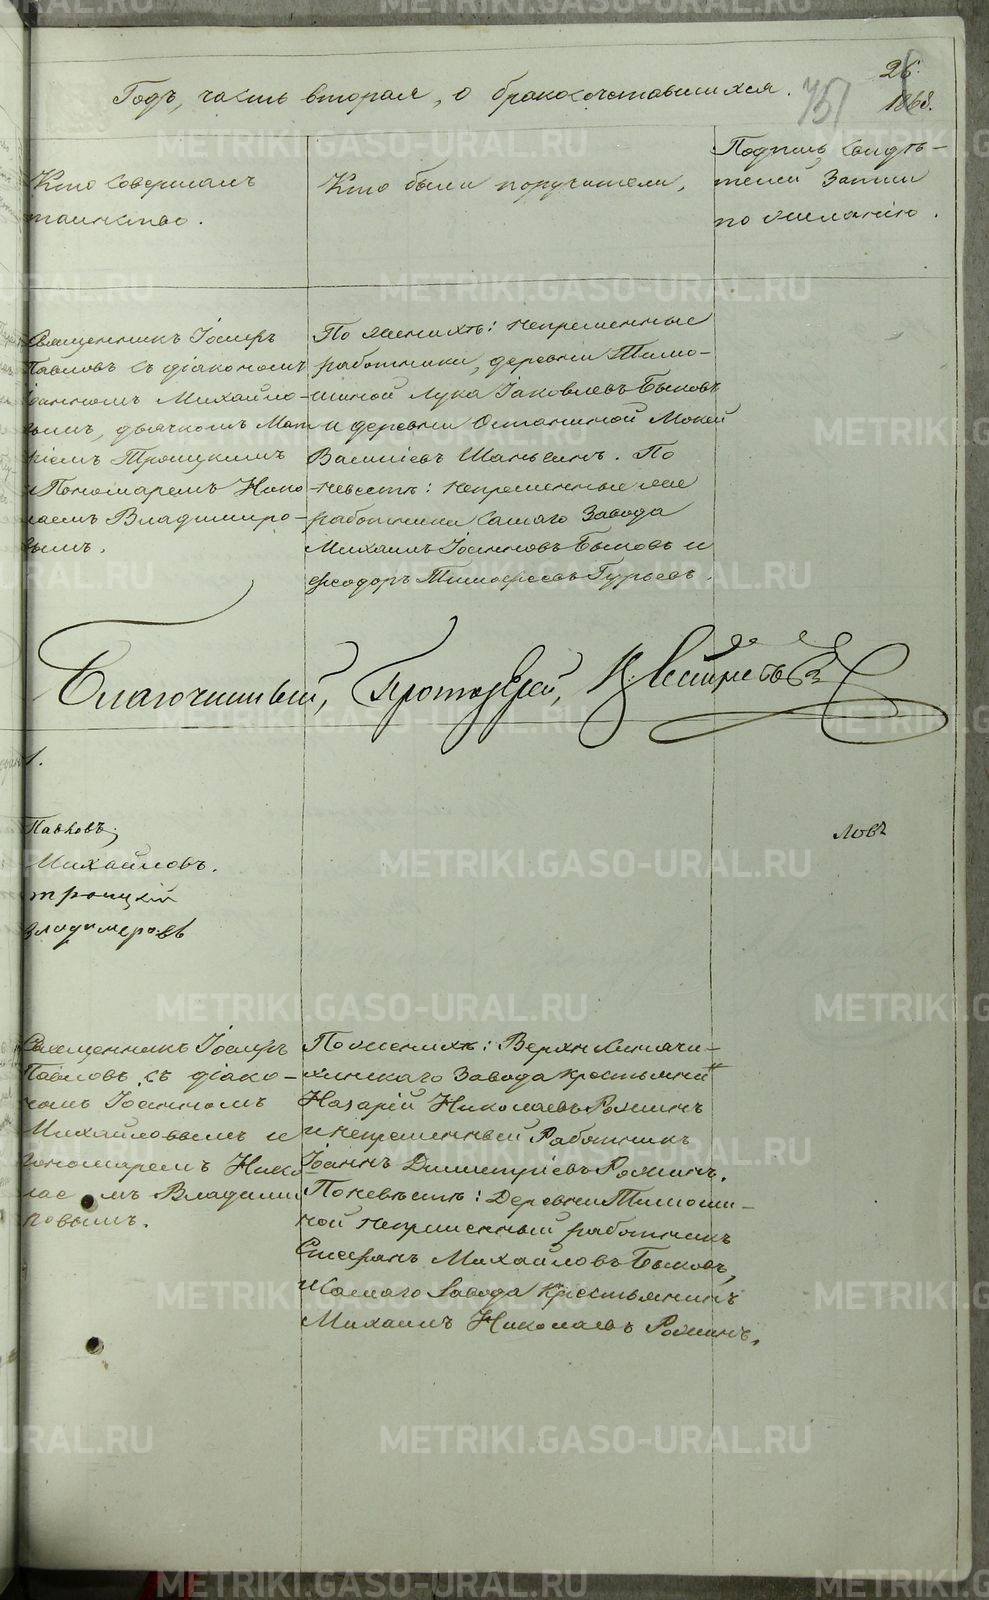 26.
Годъ, часть вторая, о бракосочетавшихся. 751 1868.
Кто совершалъ
таинство.
Кто были поручители.
Подпись свидѣ-
телей записи
по желанію.
Священникъ Іосифъ
Павловъ съ діакономъ
Іоанномъ Михайло-
вымъ, дьячкомъ Мат
ѳіемъ Троицкимъ
и Пономаремъ Нико
лаемъ Владимиро-
вымъ.
По женихѣ: непременные
работники, деревни Тимо-
шиной Лука Іаковлевъ Быковъ
и деревни Останиной Мокей
Василіевъ Шаньгинъ. По
невестѣ: непременные же
работники сашаго Завода
Михаилъ Іоанновъ Быковъ и
Ѳеодоръ Тимофеевъ Гурьевъ.
Благочинный, Протоіерей,
1.
Павловъ,
Михайловъ.
Троицкій
Владимеровъ
ловъ
Священникъ Іосифъ
Павловъ съ діако-
номъ Іоанномъ
Михайловымъ и
Пономаремъ Нико
лаемъ Владими
ровымъ.
По женихѣ: Верхнеи
скаго Завода крестьянинъ
Назарій Николаевъ Рожинъ
и непременный Работникъ
Іоаннъ Димитріевъ Рожинъ.
По невѣстѣ: Деревни Тимоши-
ной непременный работникъ
Михайловъ Быковъ,
и сашаго Завода Крестьянинъ
Михаилъ Николаевъ Рожинъ.
METRIKI.GASO-URAL.RU